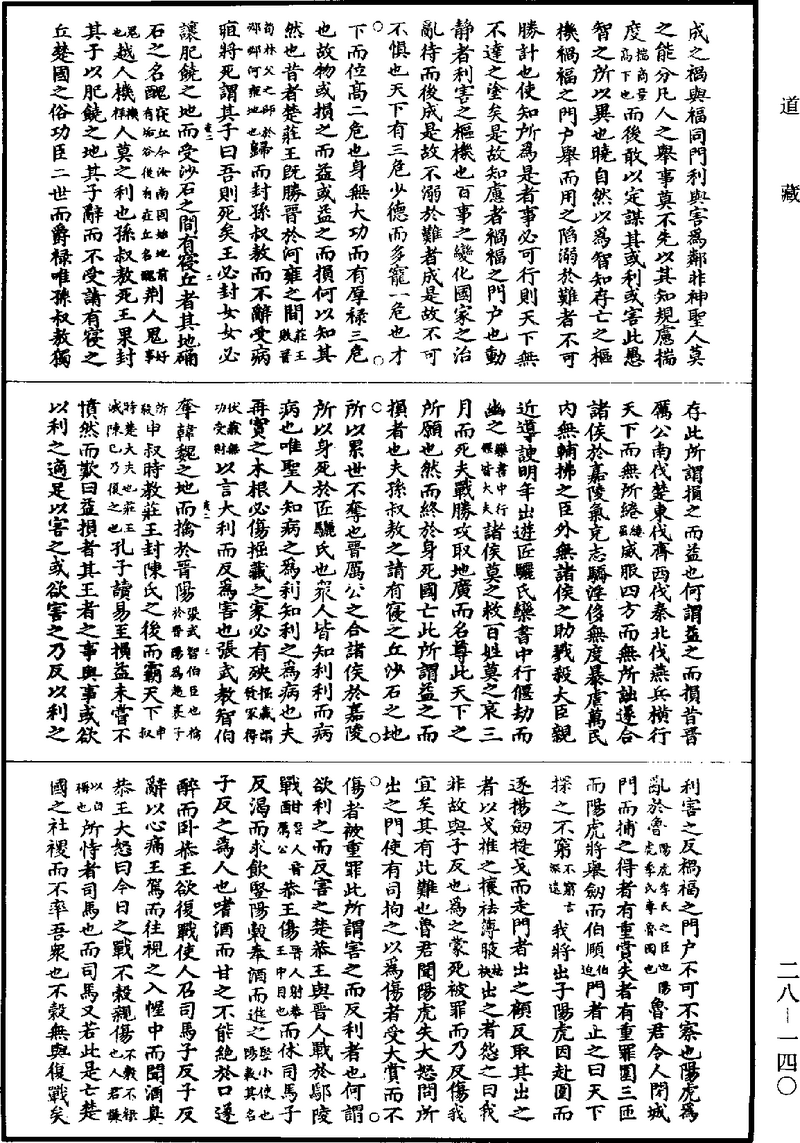 道藏
二八－一四〇
成之禍與福同門利與害爲鄰非神聖人莫
之能分凡人之舉事莫不先以其知規慮揣
度揣商量高下也而後敢以定謀其或利或害此愚
智之所以異也曉自然以爲智知存亡之樞
機禍福之門户舉而用之陷溺於難者不可
勝計也使知所爲是者事必可行則天下無
不達之塗矣是故知慮者禍福之門户也動
靜者利害之樞機也百事之變化國家之治
亂待而後成是故不溺於難者成是故不可
不慎也天下有三危少德而多寵一危也才
下而位髙二危也身無大功而有厚禄三危
也故物或損之而益或益之而損何以知其
然也昔者楚莊王既勝晉於河雍之間莊王敗晉
荀林父之師於邲邲河雍地也歸而封孫叔敖而不辭受病
疽將死謂其子曰吾則死矣王必封女女必
讓肥饒之地而受沙石之間有寢丘者其地确
石之名醜寢丘今汝南固始地前有垢谷後有莊丘名醜荆人鬼好事
鬼也越人機機祥人莫之利也孫叔敖死王果封
其子以肥饒之地其子辭而不受請有寢之
丘楚國之俗功臣二世而爵禄唯孫叔敖獨
存此所謂損之而益也何謂益之而損昔晉
厲公南伐楚東伐齊西伐秦北伐燕兵横行
天下而無所綣綣屈威服四方而無所詘遂合
諸侯於嘉陵氣充志驕淫侈無度暴虐萬民
内無輔拂之臣外無諸侯之助戮殺大臣親
近導諛明年出遊匠驪氏欒書中行偃劫而
幽之欒書中行偃皆大夫諸侯莫之救百姓莫之哀三
月而死夫戰勝攻取地廣而名尊此天下之
所願也然而終於身死國亡此所謂益之而
損者也夫孫叔敖之請有寢之丘沙石之地
所以累世不奪也晉厲公之合諸侯於嘉陵
所以身死於匠驪氏也衆人皆知利利而病
病也唯聖人知病之爲利知利之爲病也夫
再實之木根必傷掘藏之家必有殃掘藏謂發冢得
伏藏無功受財以言大利而反爲害也張武教智伯
奪韓魏之地而擒於晉陽張武智伯臣也擒於晉陽爲趙襄子
所殺申叔時教莊王封陳氏之後而霸天下申叔
時楚大夫也莊王滅陳已乃復之也孔子讀易至損益未嘗不
憤然而歎曰益損者其王者之事與事或欲
以利之適足以害之或欲害之乃反以利之
利害之反禍福之門户不可不察也陽虎爲
亂於魯陽虎季氏之臣也陽虎季氏專魯國也魯君令人閉城
門而捕之得者有重賞失者有重罪圍三匝
而陽虎將舉劒而伯頤伯迫門者止之曰天下
探之不窮不窮言深遠我將出子陽虎因赴圍而
逐揚劒提戈而走門者出之顧反取其出之
者以戈推之攘袪薄腋袪袂出之者怨之曰我
非故與子反也爲之蒙死被罪而乃反傷我
宜矣其有此難也魯君聞陽虎失大怒問所
出之門使有司拘之以爲傷者受大賞而不
傷者被重罪此所謂害之而反利者也何謂
欲利之而反害之楚恭王與晉人戰於鄢陵
戰酣晉人晉厲公恭王傷晉人射恭王中目也而休司馬子
反渴而求飲豎陽穀奉酒而進之豎小使也陽穀其名
子反之爲人也嗜酒而甘之不能絶於口遂
醉而卧恭王欲復戰使人召司馬子反子反
辭以心痛王駕而往視之入幄中而聞酒臭
恭王大怒曰今日之戰不穀親傷不穀不禄也人君謙
以自稱也所恃者司馬也而司馬又若此是亡楚
國之社稷而不率吾衆也不穀無與復戰矣